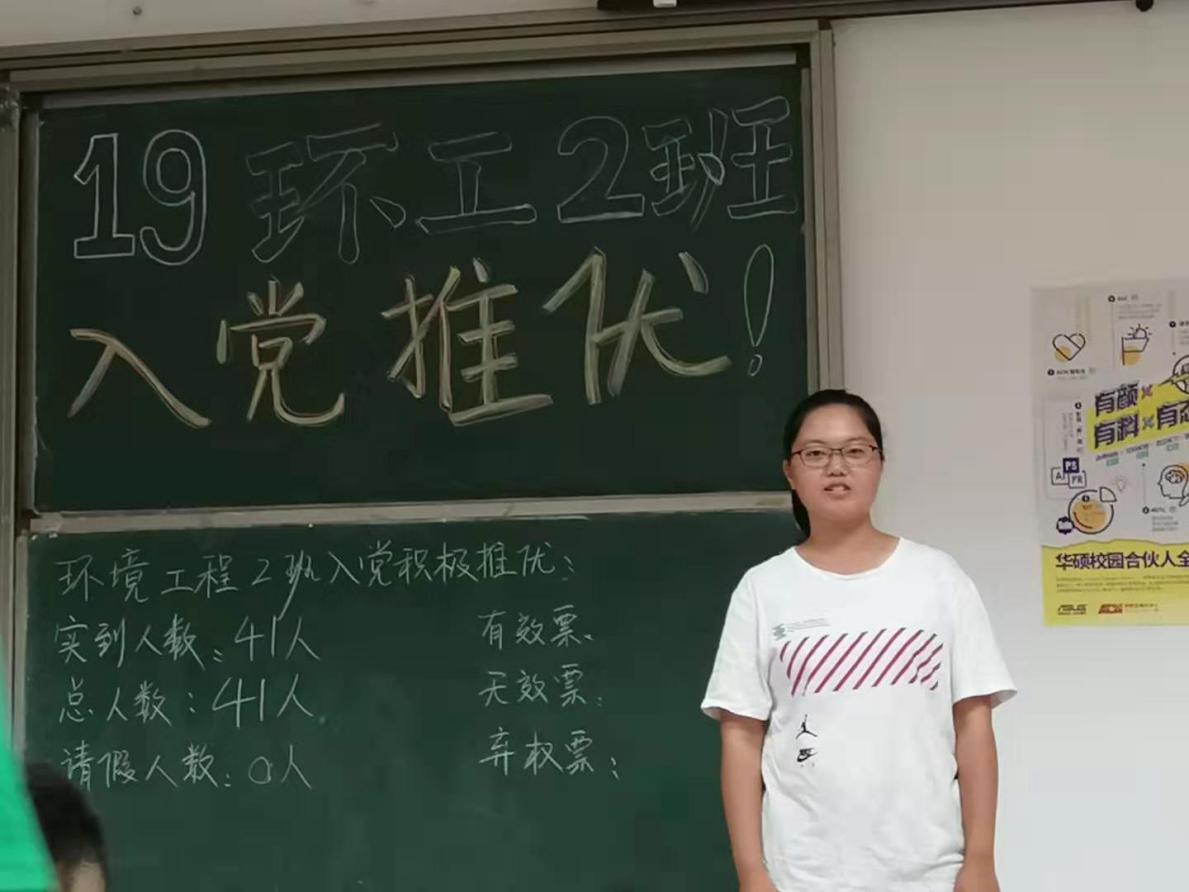 19环工2班
入党推优!
环境工程2班入党积极推优:
实到人数:41人
总人数:41人
请假人数:0人
有效票:
无效票:
弃权票:
有颜×
有料×有态
PS
AI
PR
华硕校园合伙人全
ASUS